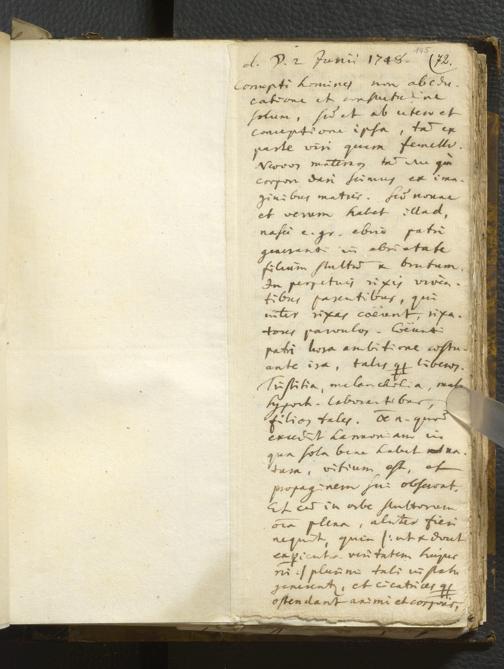 145
d. D. 2 Junii 1748. (72.
Corrupti homines non ab edu-
catione et consuetudine
solum, sed et ab utero et
conceptione ipsa, tam ex
parte viri quam femellae.
Naevos maternos tam
corpori dari scimus ex ima-
ginibus matris. Sed nonne
et verum habet illud,
nasci e. gr. ebrio patri
generanti in ebrietate
filium stultum & brutum.
In perpetuis rixis viven-
tibus parentibus, qui
inter rixas coëunt, rixa-
tores parvulos. Coëunti
patri hora ambitione
ante ira, tales qq liberos.
Tristitia, melancholia, malo
hypoch. laborantibus,
filios tales. quod
excedit harmoniam in
qua sola bene habet natura
, vitium est, et
propaginem sui observat.
Et cum in orbe stultorum
omnia plena, aliter fieri
nequit, quin /: ut & dent
veritatem hujus
rei :/ plurimi tali in statu
generent, et cicatrices qq
ostendant animi et corporis,